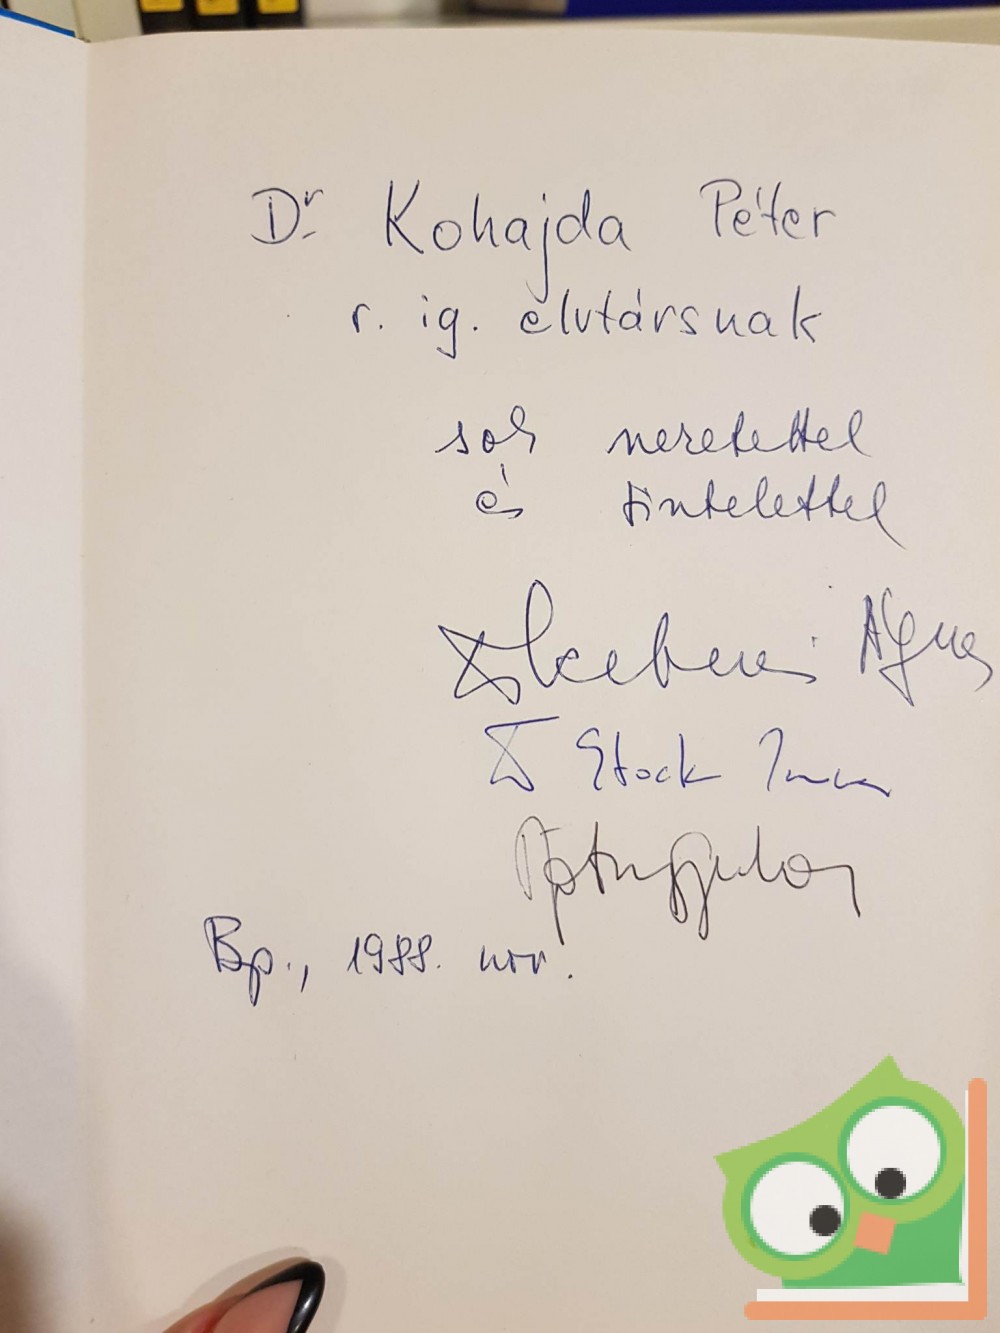 Dr. Kohajda Péter
r. ig. elvtársnak
sok szeretettel
és tisztelettel
Ágnes
Stock Imre
Bp., 1988. nov.